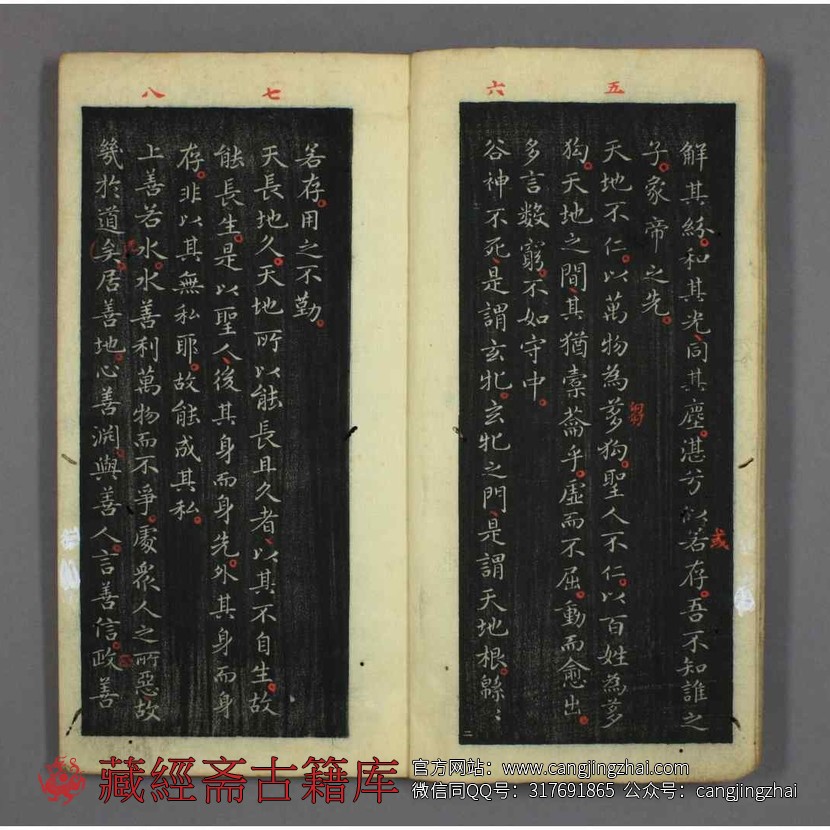 五
六
解其紛和其光同其塵湛兮似若存吾不知誰之
或
子象帝之先
天地不仁以萬物為芻狗聖人不仁以百姓為芻
芻
狗天地之間其猶橐籥乎虛而不屈動而愈出
多言數窮不如守中
谷神不死是謂玄牝玄牝之門是謂天地根綿〻
二
七
八
若存用之不勤
天長地久天地所以能長且久者以其不自生故
能長生是以聖人後其身而身先外其身而身
存非以其無私耶故能成其私
上善若水水善利萬物而不爭處衆人之所惡故
幾於道矣居善地心善淵與善人言善信政善
藏經斋古籍库
官方网站：www.cangjingzhai.com
微信同QQ号：317691865 公众号：cangjingzhai